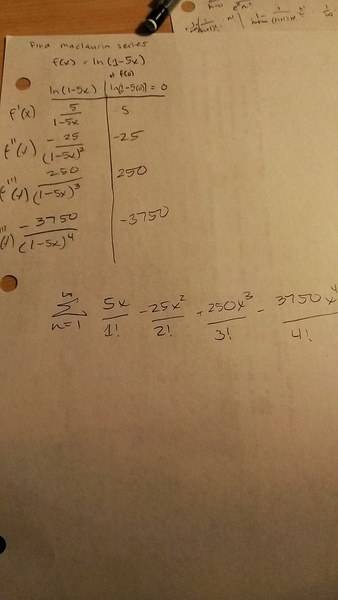 Find maclaurin series
f(x) = ln(1-5x)
at f(0)
ln(1-5x) | ln[1-5(0)] = 0
f'(x) 5/(1-5x) | 5
f''(x) -25/(1-5x)² | -25
f'''(x) 250/(1-5x)³ | 250
-3750/(1-5x)⁴ | -3750
∑ n=1 5x/1! - 25x²/2! + 250x³/3! - 3750x⁴/4!